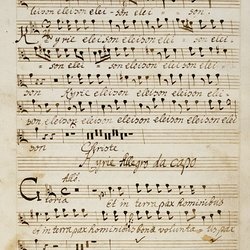 leison eleison eleison elei son
Kyrie eleison eleison eleison elei
son elei son eleison elei
son Kyrie eleison eleison elei
son eleison eleison eleison eleison elei
son
Christe
Kyrie Allegro da capo
All:
Gloria et in terra pax hominibus
et in terra pax hominibus bonæ volunta tis pax